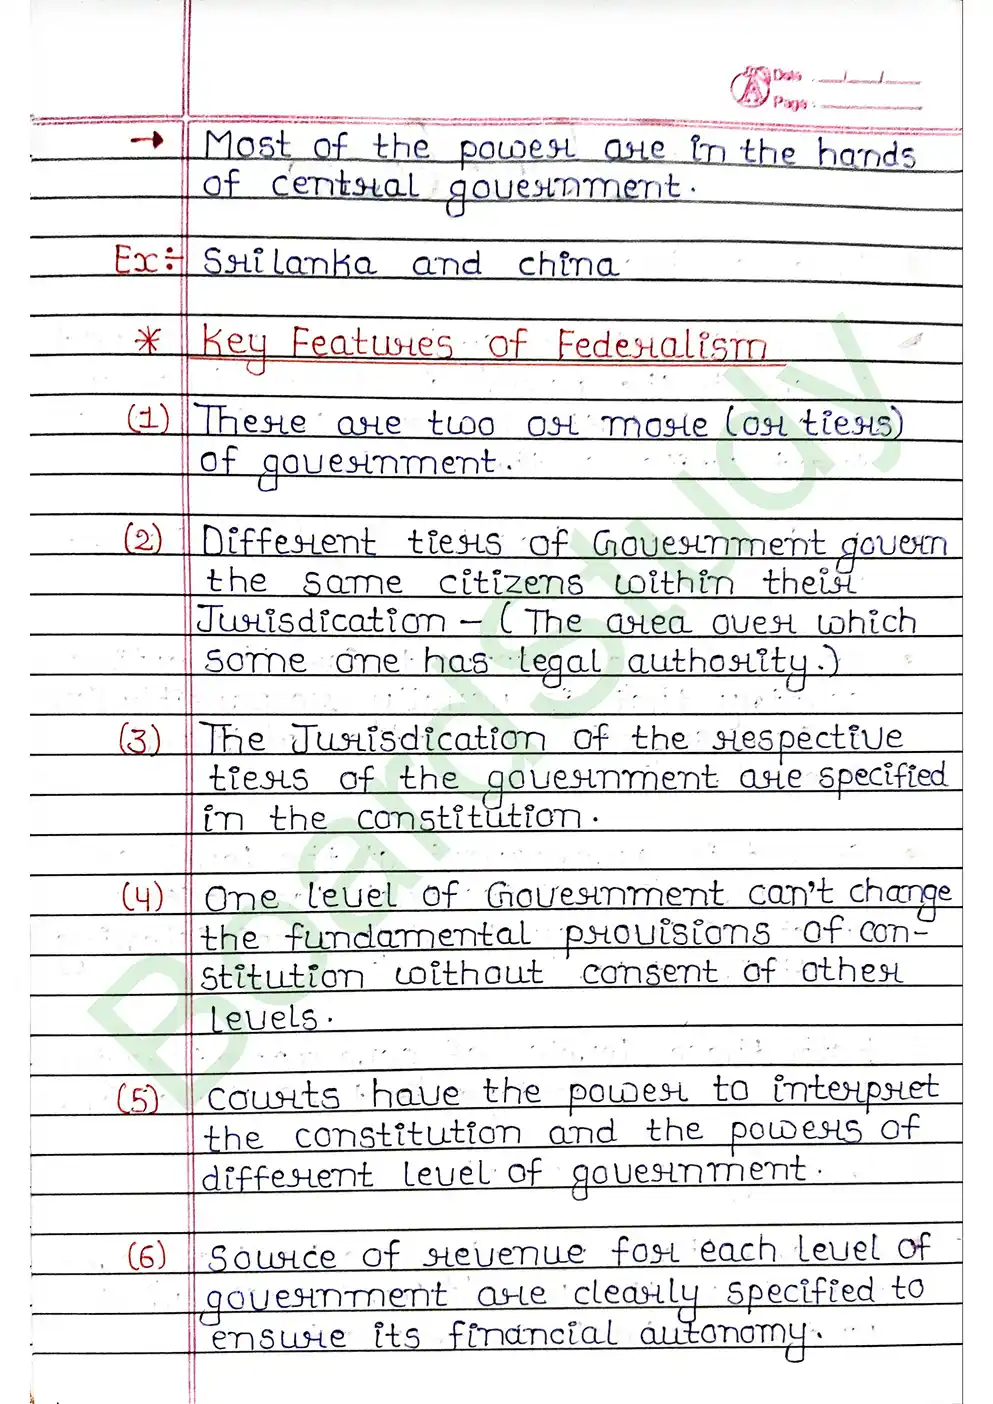 Date : __/__/__
Page : ______
→ Most of the power are in the hands
of central government.
Ex:- Srilanka and china
* Key Features of Federalism
(1) There are two or more (or tiers)
of government.
(2) Different tiers of Government govern
the same citizens within their
Jurisdication – (The area over which
some one has legal authority.)
(3) The Jurisdication of the respective
tiers of the government are specified
in the constitution.
(4) One level of Government can't change
the fundamental provisions of con-
stitution without consent of other
levels.
(5) courts have the power to interpret
the constitution and the powers of
different level of government.
(6) Source of revenue for each level of
government are clearly specified to
ensure its financial autonomy.
BoardStudy